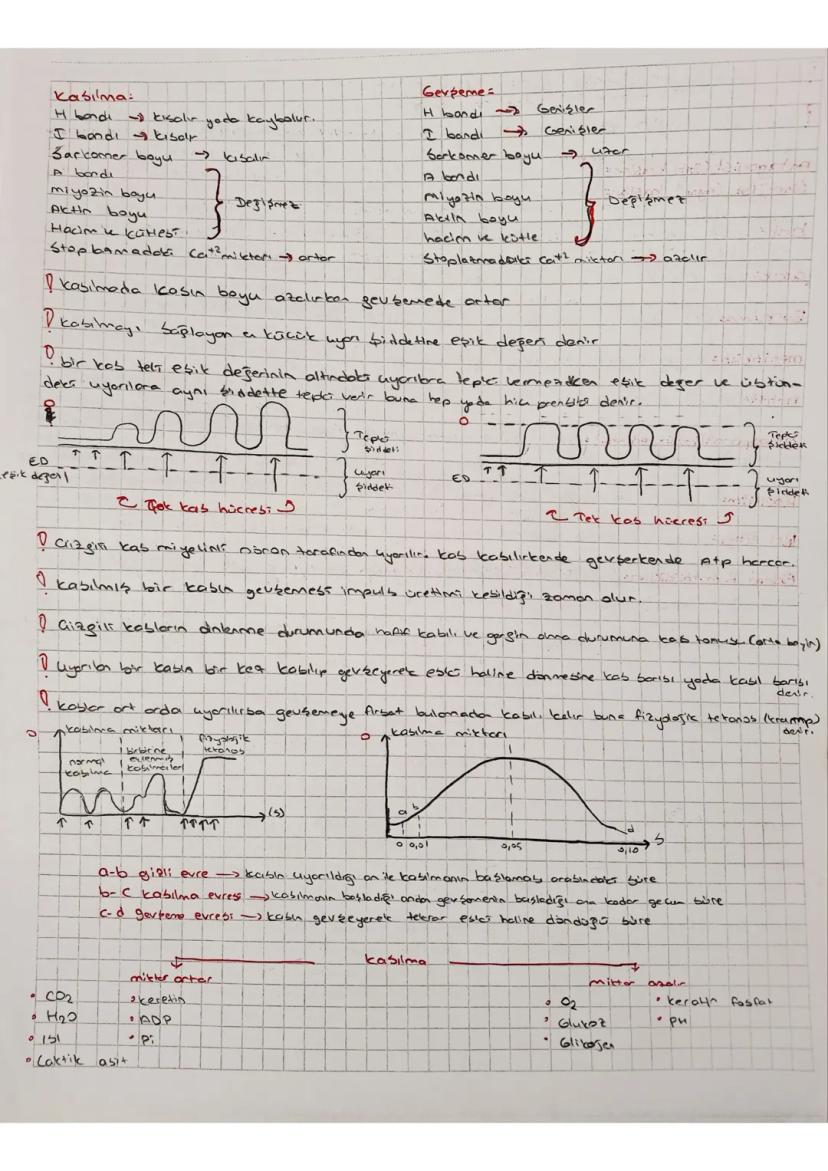 Kasılma:
H bandı → kısalır yada kaybolur.
I bandı → kısalır
Sarkomer boyu → kısalır
A bandı
miyozin boyu
Aktin boyu
Hacim ve kütlesi
Değişmez
Stoplazmadaki Ca+2 miktarı → artar
Gevşeme:
H bandı → Genişler
I bandı → Genişler
Sarkomer boyu → uzar
A bandı
miyozin boyu
Aktin boyu
hacim ve kütle
Değişmez
Stoplazmadaki Ca+2 miktarı → azalır
! kasılmada kasın boyu azalırken gevşemede artar
! kasılmayı sağlayan en küçük uyarı şiddetine eşik değeri denir
! bir kas teli eşik değerinin altındaki uyarılara tepki vermezken eşik değer ve üstün-
deki uyarılara aynı şiddette tepki verir buna hep yada hiç prensibi denir.
Tepki şiddeti
ED
eşik değeri
uyarı şiddeti
Çok kas hücresi
Tepki şiddeti
ED
uyarı şiddeti
Tek kas hücresi
! Çizgili kas miyelinli nöron tarafından uyarılır. kas kasılırkende gevşerkende Atp harcar.
! kasılmış bir kasın gevşemesi impuls üretimi kesildiği zaman olur.
! Çizgili kasların dinlenme durumunda hafif kasılı ve gergin olma durumuna kas tonusu (orta beyin)
! Uyarılan bir kasın bir kez kasılıp gevşeyerek eski haline dönmesine kas sarsı yada kasıl sarsısı
denir.
! kaslar art arda uyarılırsa gevşemeye fırsat bulamadan kasılı kalır buna fizyolojik tetanos (kramp)
denir.
kasılma miktarı
normal kasılma
birbirine eklenmiş kasılmalar
fizyolojik tetanos
(s)
kasılma miktarı
a b
d
0 0,01 0,05 0,10 s
a-b gizli evre → kasın uyarıldığı an ile kasılmanın başlaması arasındaki süre
b-c kasılma evresi → kasılmanın başladığı andan gevşemenin başladığı ana kadar geçen süre
c-d gevşeme evresi → kasın gevşeyerek tekrar eski haline döndüğü süre
kasılma
miktar artar
• CO2
• H2O
• ISI
• Laktik asit
• keretin
• ADP
• Pi
miktar azalır
• O2
• Glukoz
• Glikojen
• keratin fosfat
• PH